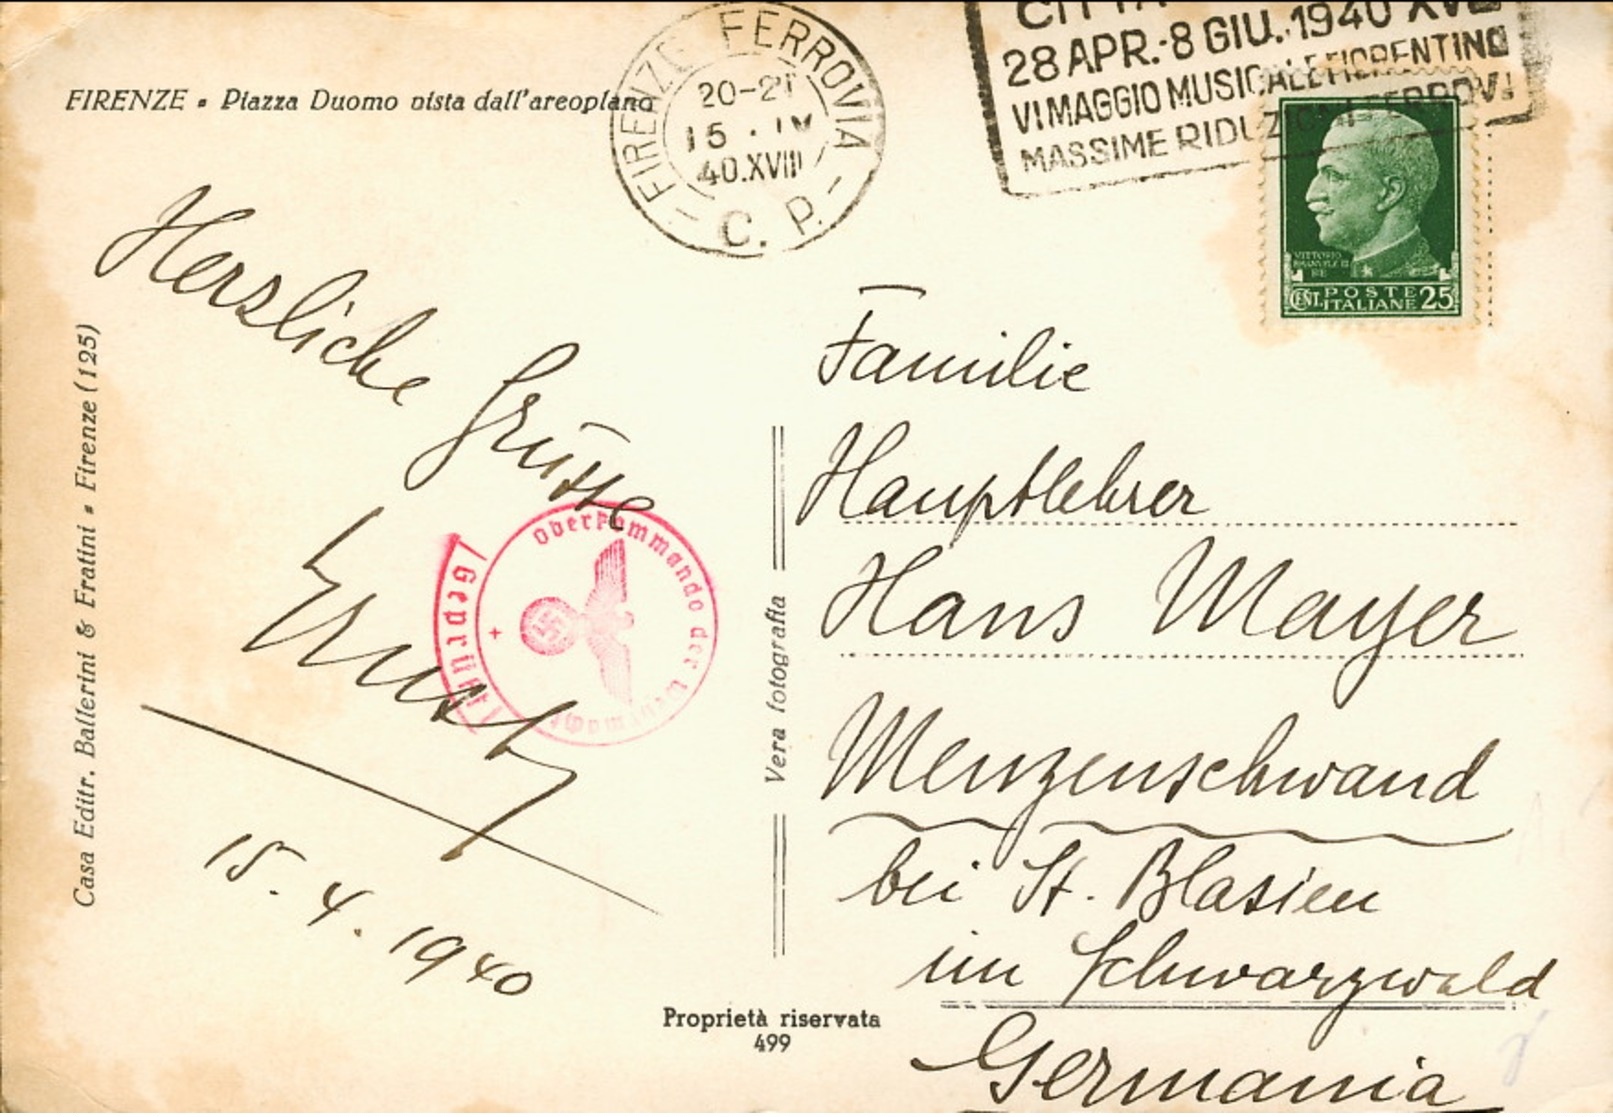 FIRENZE - Piazza Duomo vista dall'areoplano
FIRENZE FERROVIA
20-21
15 . IV
40.XVIII
- C. P. -
28 APR.-8 GIU. 1940 XVIII
VI MAGGIO MUSICALE FIORENTINO
MASSIME RIDUZIONI FERROV.
VITTORIO
EMANUELE III
RE
CENT. POSTE
ITALIANE 25
Herzliche Grüsse
Ernst
15. 4. 1940
Oberkommando der Wehrmacht
Geprüft
Casa Editr. Ballerini & Fratini - Firenze (125)
Vera fotografia
Familie
Hauptlehrer
Hans Mayer
Menzenschwand
bei St. Blasien
im Schwarzwald
Germania
Proprietà riservata
499